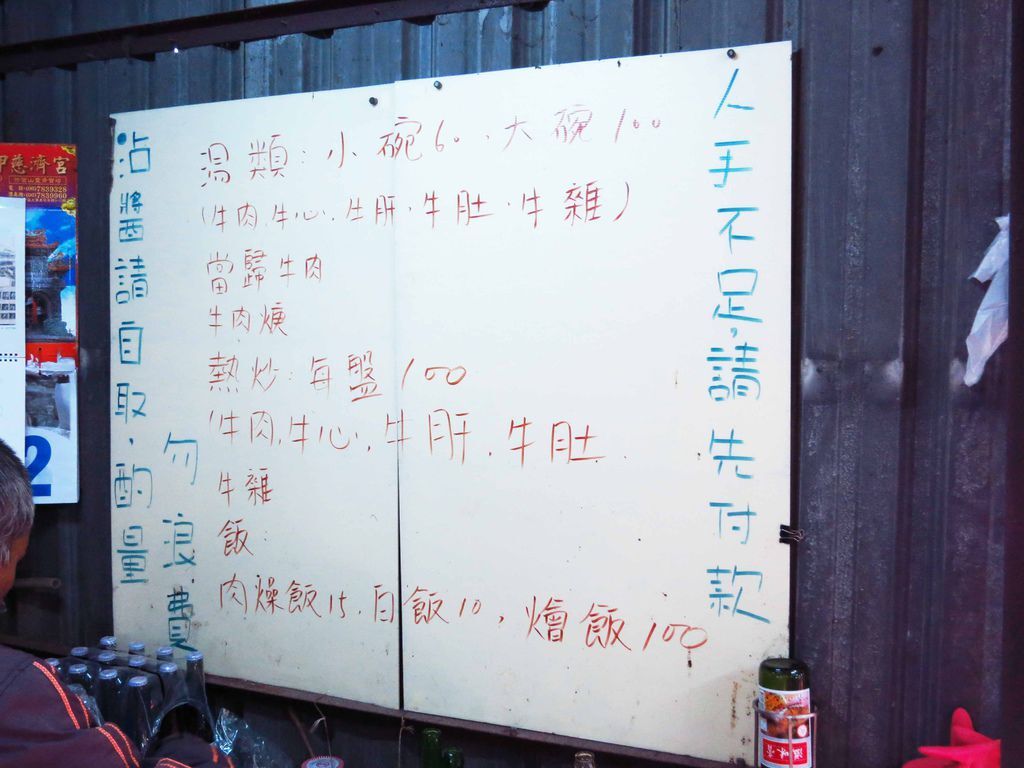 人手不足,請先付款
湯類:小碗60、大碗100
(牛肉,牛心,牛肝,牛肚,牛雜)
當歸牛肉
牛肉焿
熱炒:每盤100
(牛肉,牛心,牛肝,牛肚.
牛雜
飯:
肉燥飯15,白飯10,燴飯100
沾醬請自取,酌量
勿浪費
慈濟宮
2